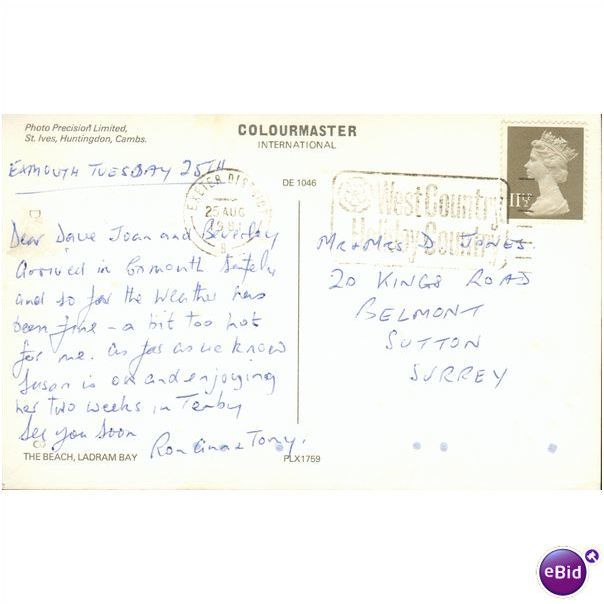 Photo Precision Limited,
St. Ives, Huntingdon, Cambs.
COLOURMASTER
INTERNATIONAL
EXMOUTH TUESDAY 25TH
DE 1046
EXETER DISTRICT
25 AUG
West Country
Holiday Country
11½
Dear Dave Joan and Beverley
arrived in Exmouth Safely
and so far the weather has
been fine - a bit too hot
for me. as far as we know
Susan is ok and enjoying
her two weeks in Tenby
See you Soon
Ron Gina & Tony.
Mr & Mrs D JONES.
20 KINGS ROAD
BELMONT
SUTTON
SURREY
THE BEACH, LADRAM BAY
PLX1759
eBid